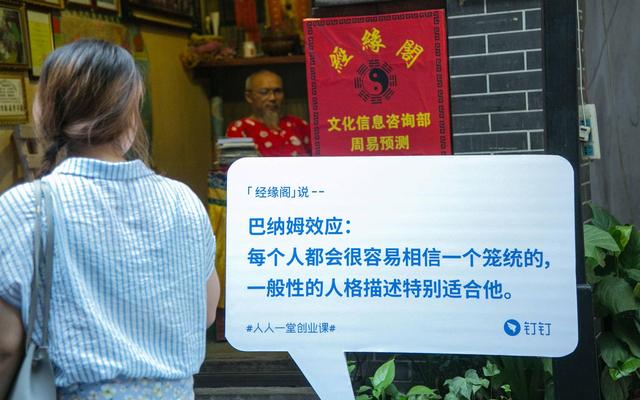 经缘阁
文化信息咨询部
周易预测
「经缘阁」说--
巴纳姆效应：
每个人都会很容易相信一个笼统的，
一般性的人格描述特别适合他。
#人人一堂创业课#
钉钉